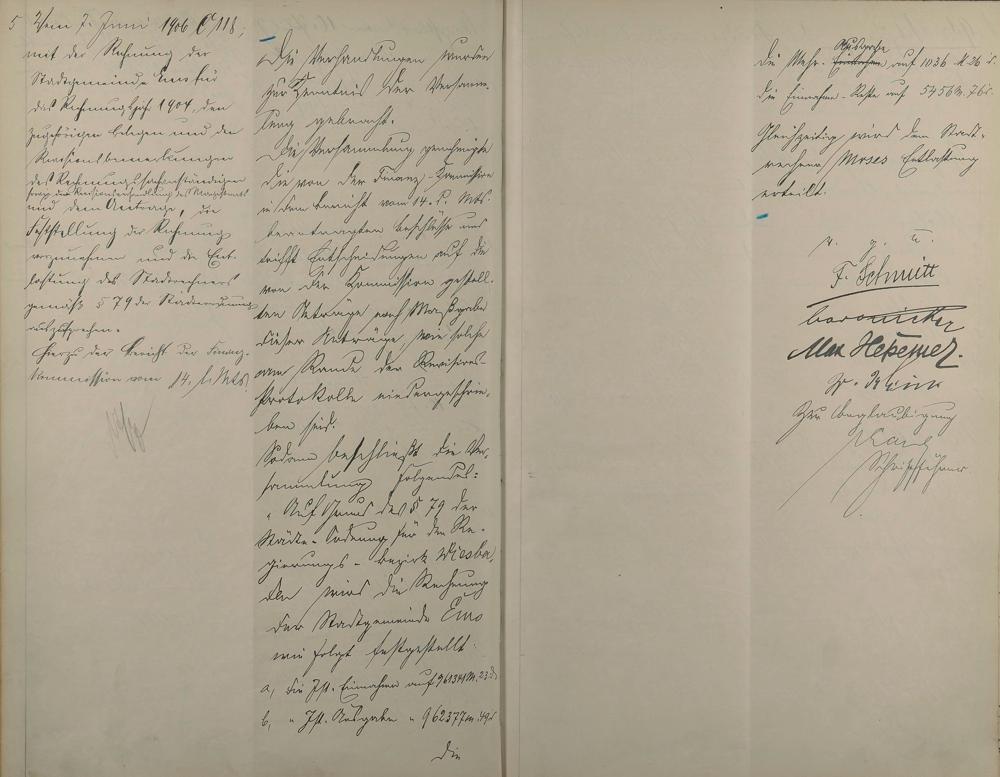 5 Vom 7. Juni 1906 C 118,
mit der Rechnung der
Stadtgemeinde Ems für
das Rechnungsjahr 1904, den
zugehörigen Belegen und den
Revisionsbemerkungen
des Rechnungssachverständigen
sowie der Revisionsverhandlung des Magistrats
und dem Antrage, die
Feststellung der Rechnung
vorzunehmen und die Ent-
lastung des Stadtrechners
gemäß § 79 der Städteordnung
auszusprechen.
Hierzu der Bericht der Finanz-
kommission vom 14. l. Mts.
Die Verhandlungen wurden
zur Kenntnis der Versamm-
lung gebracht.
Die Versammlung genehmigte
die von der Finanz-Kommission
in dem Bericht vom 14. l. Mts.
beantragten Beschlüsse und
trifft Entscheidungen auf die
von der Kommission gestell-
ten Anträge nach Maßgabe
dieser Anträge, wie solche
am Rande der Revisions-
Protokolle niedergeschrie-
ben sind.
Sodann beschließt die Ver-
sammlung Folgendes:
"Auf Grund des § 79 der
Städte-Ordnung für den Re-
gierungs-Bezirk Wiesba-
den wird die Rechnung
der Stadtgemeinde Ems
wie folgt festgestellt:
a, die Ist-Einnahme auf 961341 M. 23 d
b, " Ist-Ausgabe " 962377 M. 49 d
die
die Mehr-Ausgabe auf 1036 M 26 d.
die Einnahme-Reste auf 5456 M. 76 d.
Gleichzeitig wird dem Stadt-
rechner Moses Entlastung
erteilt.
v. g. u.
F. Schmitt
Max Hetzemer.
Zur Beglaubigung
Schriftführer